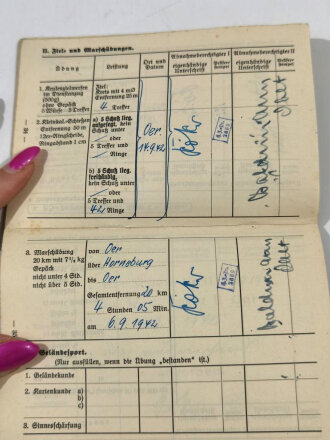 II. Ziel- und Marschübungen.
Übung
Leistung
Ort und Datum
Abnahmeberechtigter I
eigenhändige Unterschrift
Abnahmeberechtigter II
eigenhändige Unterschrift
1. Keulenzielwerfen
im Dienstanzug
(500g)
ohne Gepäck
5 Würfe — 3 Treffer
Ziel:
mit 4 m Ø
Entfernung 25 m
4 Treffer
2. Kleinkal.-Schießen
Entfernung 50 m
12er-Ringscheibe,
Ringabstand 1 cm
a) 5 Schuß lieg.
aufgelegt,
kein Schuß unter
oder
5 Treffer
und
Ringe
b) 5 Schuß lieg.
freihändig,
kein Schuß unter
oder
5 Treffer und
42 Ringe
Oer
3. Marschübung
20 km mit 7½ kg
Gepäck
nicht unter 4 Std.
nicht über 5 Std.
von Oer
über Horneburg
bis Oer
Gesamtentfernung 20 km
4 Stunden 05 Min.
am 6.9.1942
Geländesport.
(Nur ausfüllen, wenn die Übung „bestanden" ist.)
1. Geländekunde
2. Kartenkunde a)
b)
c)
3. Sinnesschärfung